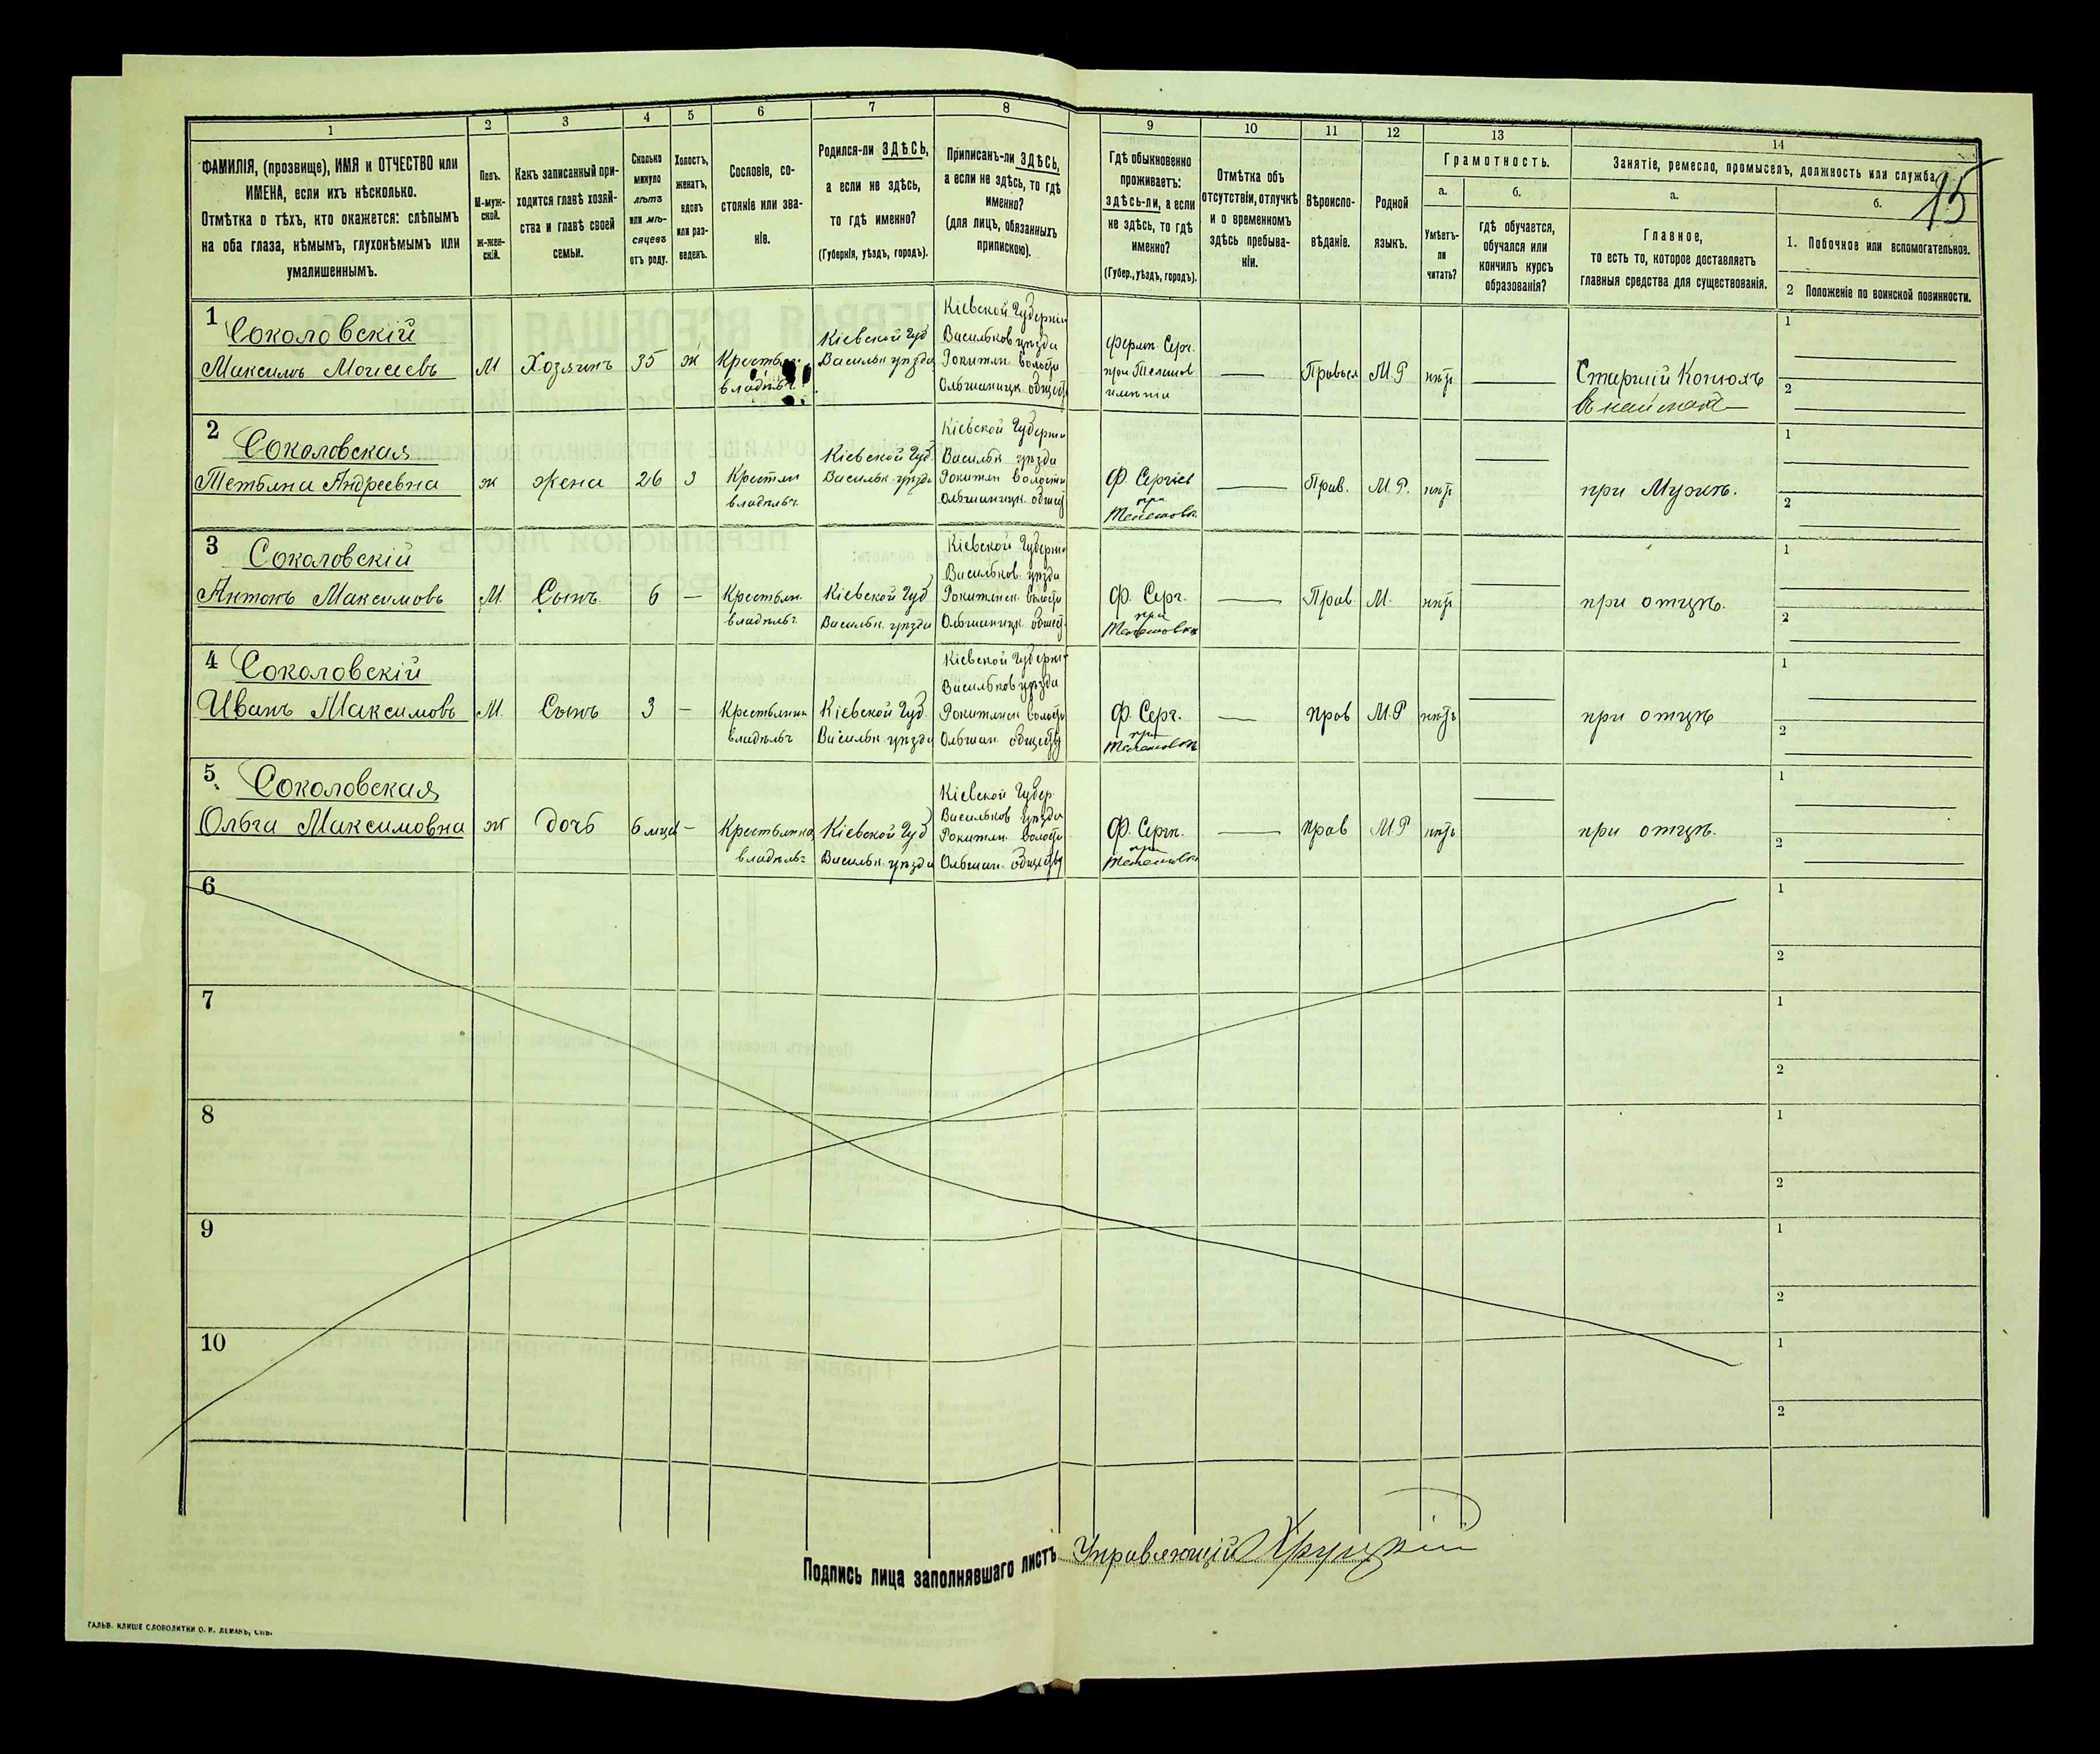 15
1
2
3
4
5
6
7
8
9
10
11
12
13
14
ФАМИЛІЯ, (прозвище), ИМЯ и ОТЧЕСТВО или
ИМЕНА, если ихъ нѣсколько.
Отмѣтка о тѣхъ, кто окажется: слѣпымъ
на оба глаза, нѣмымъ, глухонѣмымъ или
умалишеннымъ.
Полъ.
М-муж-
ской.
ж-жен-
скій.
Какъ записанный при-
ходится главѣ хозяй-
ства и главѣ своей
семьи.
Сколько
минуло
лѣтъ
или мѣ-
сяцевъ
отъ роду.
Холостъ,
женатъ,
вдовъ
или раз-
веденъ.
Сословіе, со-
стояніе или зва-
ніе.
Родился-ли ЗДѢСЬ,
а если не здѣсь,
то гдѣ именно?
(Губернія, уѣздъ, городъ).
Приписанъ-ли ЗДѢСЬ,
а если не здѣсь, то гдѣ
именно?
(для лицъ, обязанныхъ
припискою).
Гдѣ обыкновенно
проживаетъ:
здѣсь-ли, а если
не здѣсь, то гдѣ
именно?
(Губер., уѣздъ, городъ).
Отмѣтка объ
отсутствіи, отлучкѣ
и о временномъ
здѣсь пребыва-
ніи.
Вѣроиспо-
вѣданіе.
Родной
языкъ.
Грамотность.
а.
б.
Умѣетъ-
ли
читать?
Гдѣ обучается,
обучался или
кончилъ курсъ
образованія?
Занятіе, ремесло, промыселъ, должность или служба.
а.
б.
Главное,
то есть то, которое доставляетъ
главныя средства для существованія.
1. Побочное или вспомогательное.
2 Положеніе по воинской повинности.
1 Соколовскій
Максимъ Моисеевъ
М
Хозяинъ
35
ж
владѣльч.
Кіевской Губ
Васильк. уѣзда
Кіевской Губерніи
Васильков уѣзда
Рокитян волости
Ольшаницк. общест
Ферм. Серг.
при Телешов
имѣніи
Правосл
М.Р
нѣтъ
Старшій Конюхъ
1
2
2 Соколовская
Тетьяна Андреевна
ж
жена
26
з
Крестьян
владѣльч.
Кіевской Губ.
Васильк. уѣзда
Кіевской Губерніи
Васильк уѣзда
Рокитян волости
Ольшаницк. общест
Ф Сергіев
при
Телешовк.
Прав.
М.Р.
нѣтъ
при Мужѣ.
1
2
3 Соколовскій
Антонъ Максимовъ
М.
Сынъ.
6
—
Крестьян.
владѣльч.
Кіевской Губ
Васильк. уѣзда
Кіевской Губерніи
Васильков. уѣзда
Рокитянск. волости
Ольшаницк. общест.
Ф. Серг.
при
Телешовкѣ
Прав
М.
нѣтъ
при отцѣ.
1
2
4 Соколовскій
Иванъ Максимовъ
М.
Сынъ
3
—
Крестьянин
владѣльч
Кіевской Губ.
Васильк. уѣзда
Кіевской Губерніи
Васильков уѣзда
Рокитянск волости
Ольшан. обществу
Ф. Серг.
при
Телешовкѣ
прав
М.Р
нѣтъ
при отцѣ
1
2
5. Соколовская
Ольга Максимовна
ж
дочь
6 мцы
—
Крестьянка
владѣльч
Кіевской Губ
Васильк. уѣзда
Кіевской Губер.
Васильков уѣзда
Рокитян. волости
Ольшан. обществу
Ф. Серги.
при
Телешовкѣ
прав
М.Р
нѣтъ
при отцѣ.
1
2
6
1
2
7
1
2
8
1
2
9
1
2
10
1
2
Подпись лица заполнявшаго листъ Управляющій
ГАЛЬВ. КЛИШЕ СЛОВОЛИТНИ О. И. ЛЕМАНЪ, СПБ.